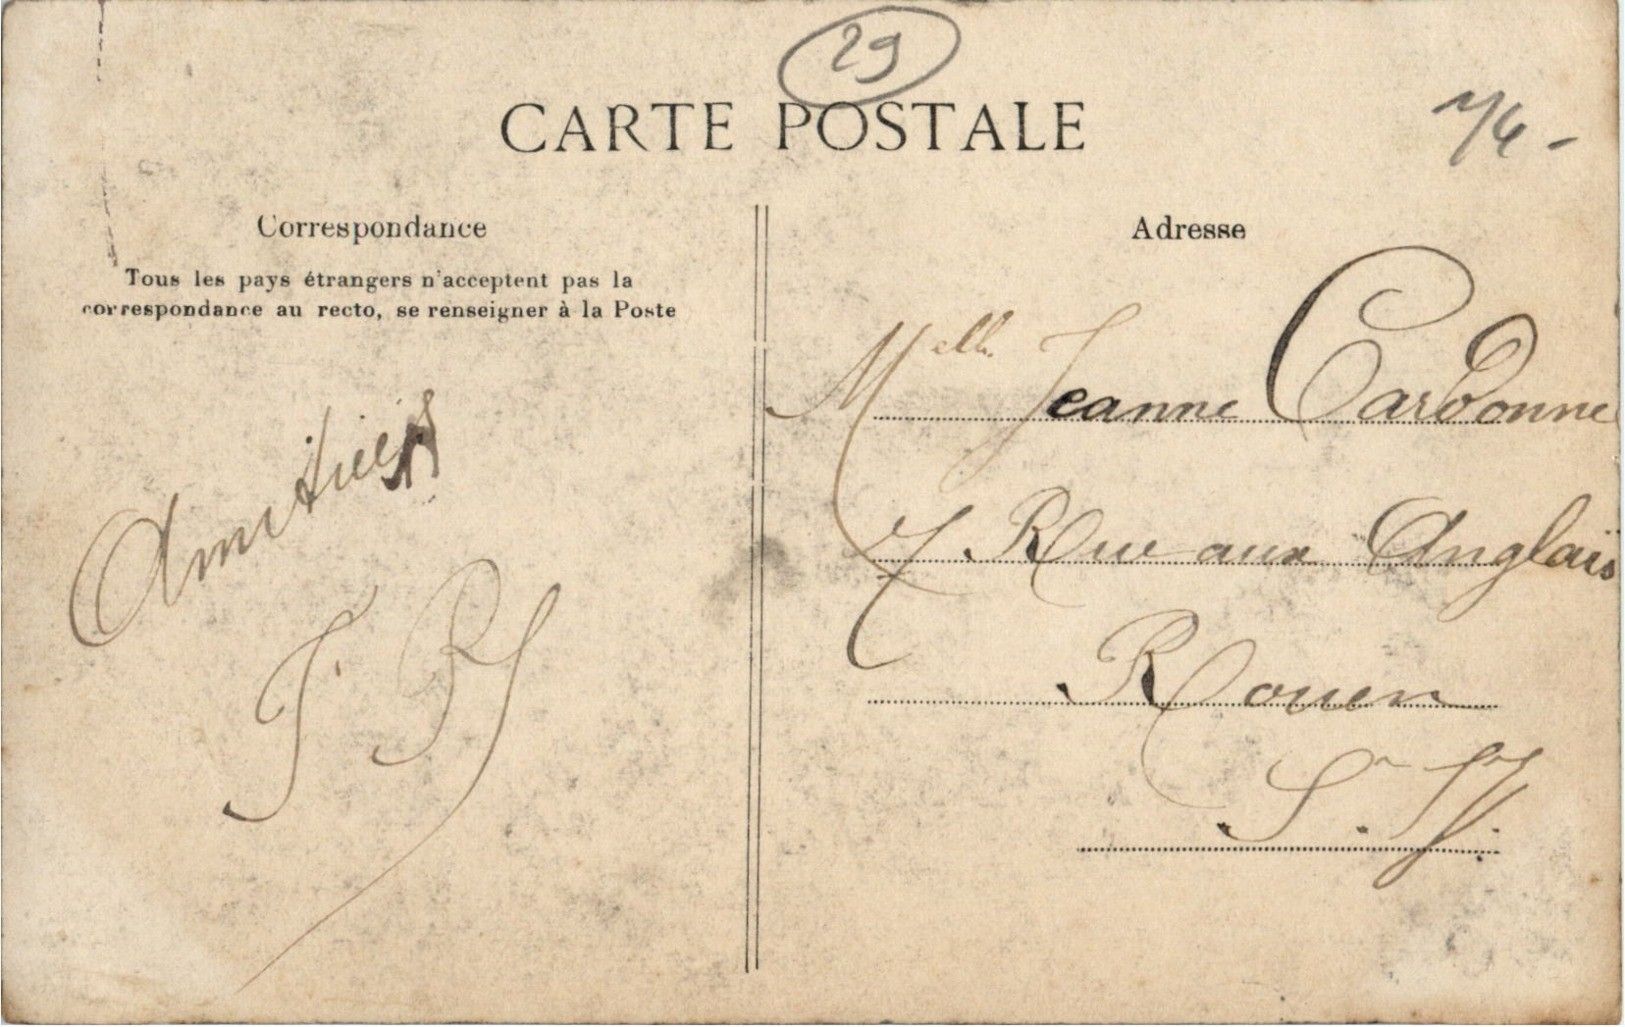 29
CARTE POSTALE
Correspondance
Tous les pays étrangers n'acceptent pas la
correspondance au recto, se renseigner à la Poste
Amitiés
Adresse
Melle Jeanne Carbonne
7. Rue aux Anglais
Rouen
S. If.